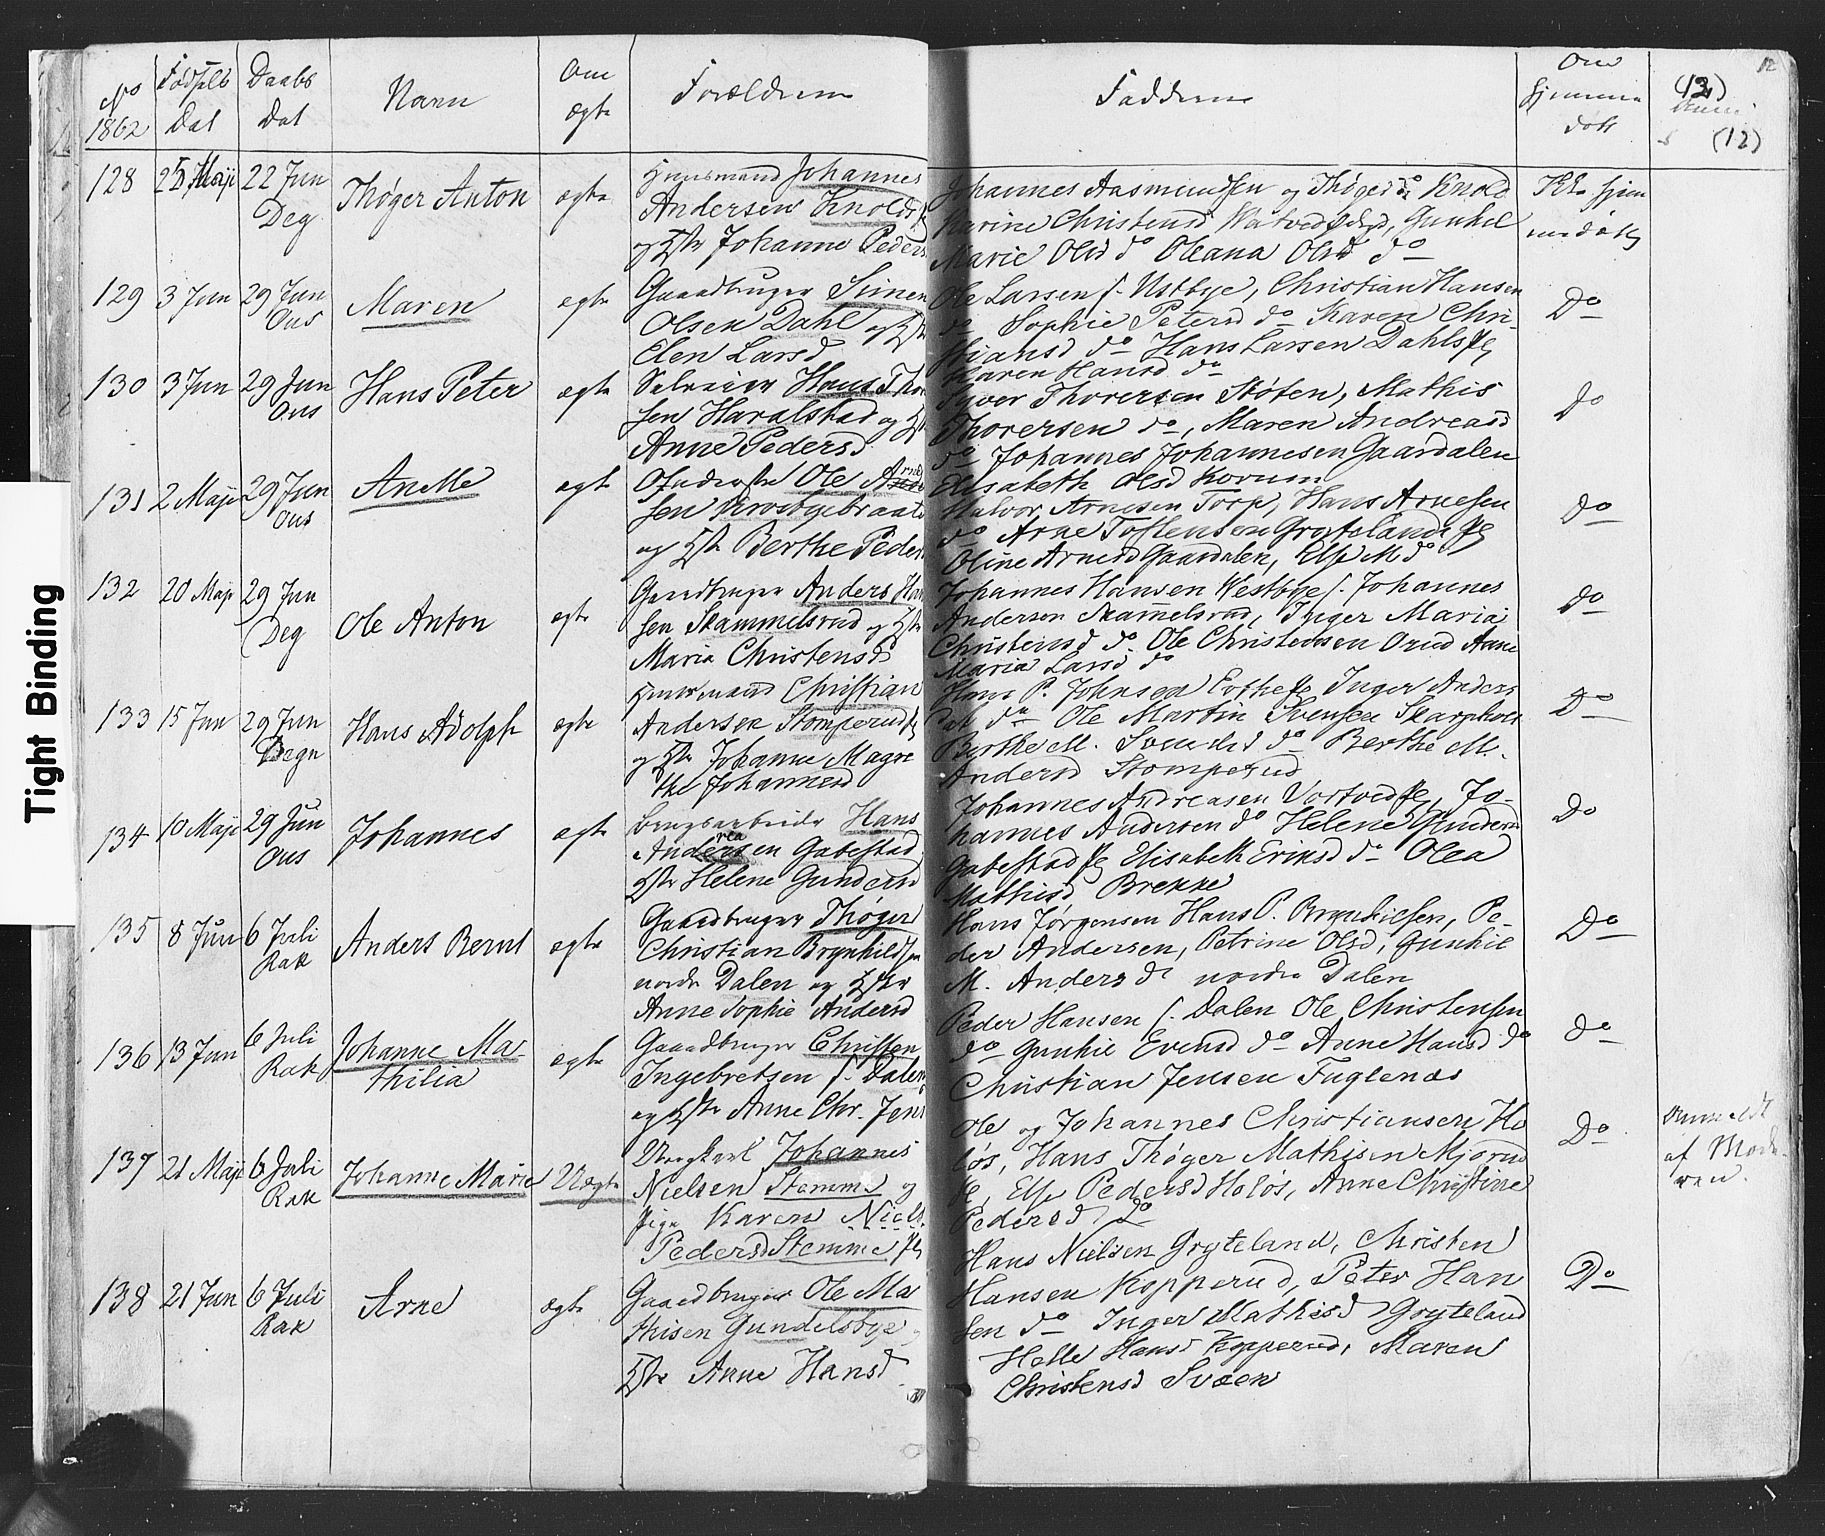 No 1862
Fødsels Dat
Daabs Dat
Navn
Om ægte
Forældrene
Faddere
Om hjemmedøbt
(12)
(12)
12
Tight Binding
128 25 Maji 22 Jun Deg Thøger Anton ægte
Huusmand Johannes
Andersen Knold
og Hstr Johanne Peders
Johannes Aasmundsen og Thøger do Knold
Karine Christensd Gunhil
Marie Olsd do Oleana Olsd do
129 3 Jun 29 Jun Ons Maren ægte
Gaardbruger Simen
Olsen Dahl og Hstr
Elen Larsd
Ole Larsen s. Ustbye, Christian Hansen
do Sophie Petersd do Karen Chri-
stiansd do Hans Larsen Dahls
Karen Hansd do
Do
130 3 Jun 29 Jun Ons Hans Peter ægte
Selveier Hans Thor
sen Haralstad og Hstr
Anne Pedersd
Syver Thorersen Støten, Mathis
Thorersen do, Maren Andreasd
do Johannes Johannesen Gaardalen
Elisabeth Olsd Korum
Do
131 2 Maji 29 Jun Ons Anelle ægte
Ole Arne
sen Krostyebraate
og Hstr Berthe Peders
Halvor Arnesen Torp, Hans Arnesen
do Arne Toftensen Grytelands
Oline Arnesd Gaardalen, Else M do
Do
132 20 Maji 29 Jun Deg Ole Anton ægte
Gaardbruger Anders Han
sen Skammelsrud og Hstr
Maria Christensd
Johannes Hansen Westbye s. Johannes
Andersen Skammelsrud, Inger Maria
Christensd do. Ole Christensen Orud Anne
Maria Larsd do
Do
133 15 Jun 29 Jun Degn Hans Adolph ægte
Huusmand Christian
Andersen Stomperud
og Hstr Johanne Magre
the Johannesd
Hans P. Johnsen Inger Anders
do Ole Martin Svensen
Berthe M. Svendsd do Berthe M.
Andersd Stomperud
Do
134 10 Maji 29 Jun Ons Johannes ægte
Brugsarbeider Hans
Andreasen Gabestad
Hstr Helene Gundersd
Johannes Andreasen Jo-
hannes Andersen do Helene Gunders
Gabestad Elisabeth Eriksd do Olea
Mathisd Brekke
Do
135 8 Jun 6 Juli Rak Anders Bernt ægte
Gaardbruger Thøger
Christian Brynhildsen
nordr Dalen og Hstr
Anne Sophie Andersd
Hans Jørgensen Hans P. Brynhilsen, Pe-
der Andersen, Petrine Olsd, Gunhil
M. Andersd nordre Dalen
Do
136 13 Jun 6 Juli Rak Johanne Ma-
thilia ægte
Gaardbruger Christen
Ingebretsen s. Dalen
og Hstr Anne Chr. Jens
Peder Hansen s. Dalen Ole Christensen
do Gunhil Evensd do Anne Hansd do
Christian Jensen Fuglenæs
Do
137 21 Maji 6 Juli Rak Johanne Marie Uægte
Ungkarl Johannes
Nielsen Stemme og
Pige Karen Niels
Pedersd Stemme
Ole og Johannes Christiansen Ho
løs, Hans Thøger Mathisen Mjørud
Else Pedersd Holøs, Anne Christine
Pedersd do
Do
Anmeldt
af Mode-
ren.
138 21 Jun 6 Juli Rak Arne ægte
Gaardbruger Ole Ma
thisen Gundelsbye
Hstr Anne Hansd
Hans Nielsen Gryteland, Christen
Hansen Kopperud, Peter Han
sen do Inger Mathisd Gryteland
Helle Hansd Kopperud, Maren
Christensd Svæen
Do